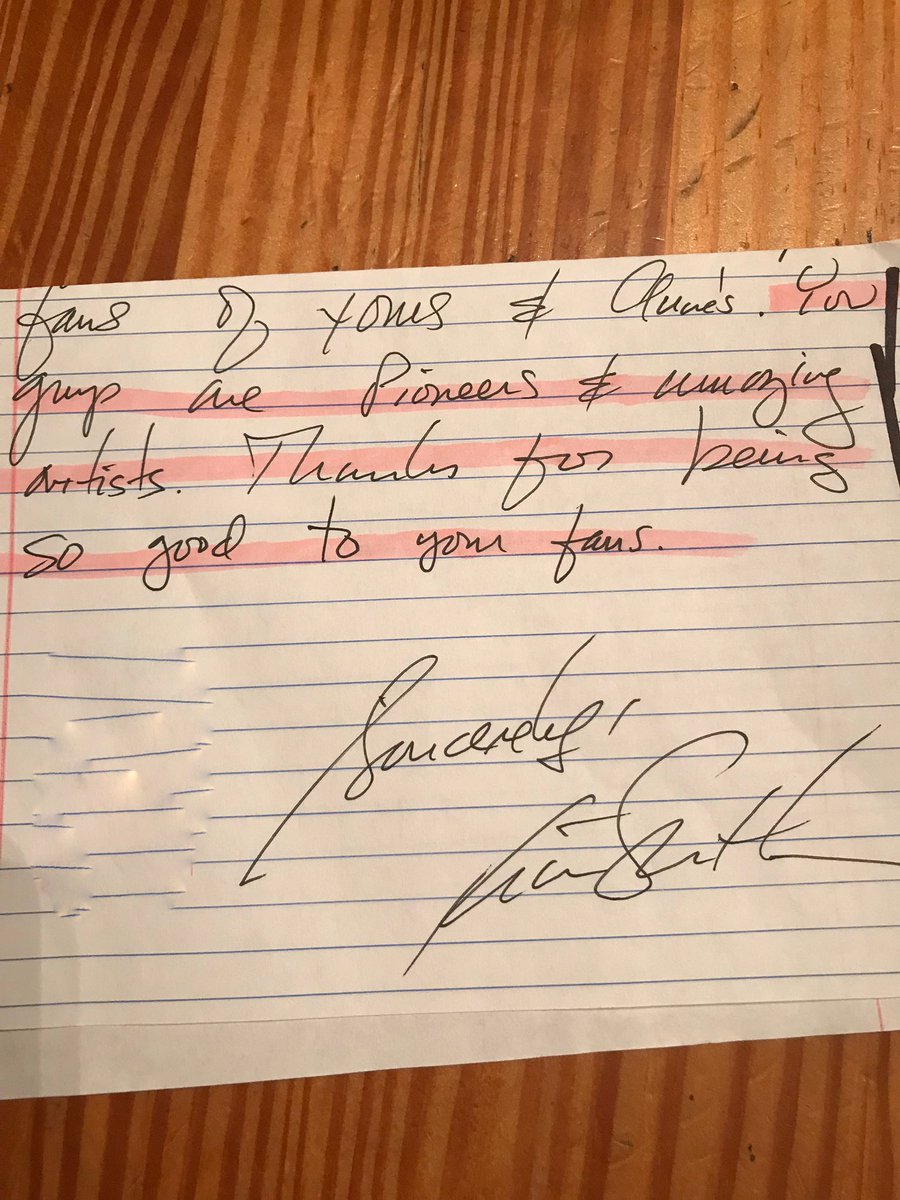 fans of yours & Anne's. You
guys are Pioneers & amazing
artists. Thanks for being
so good to your fans.
Sincerely,
Smith